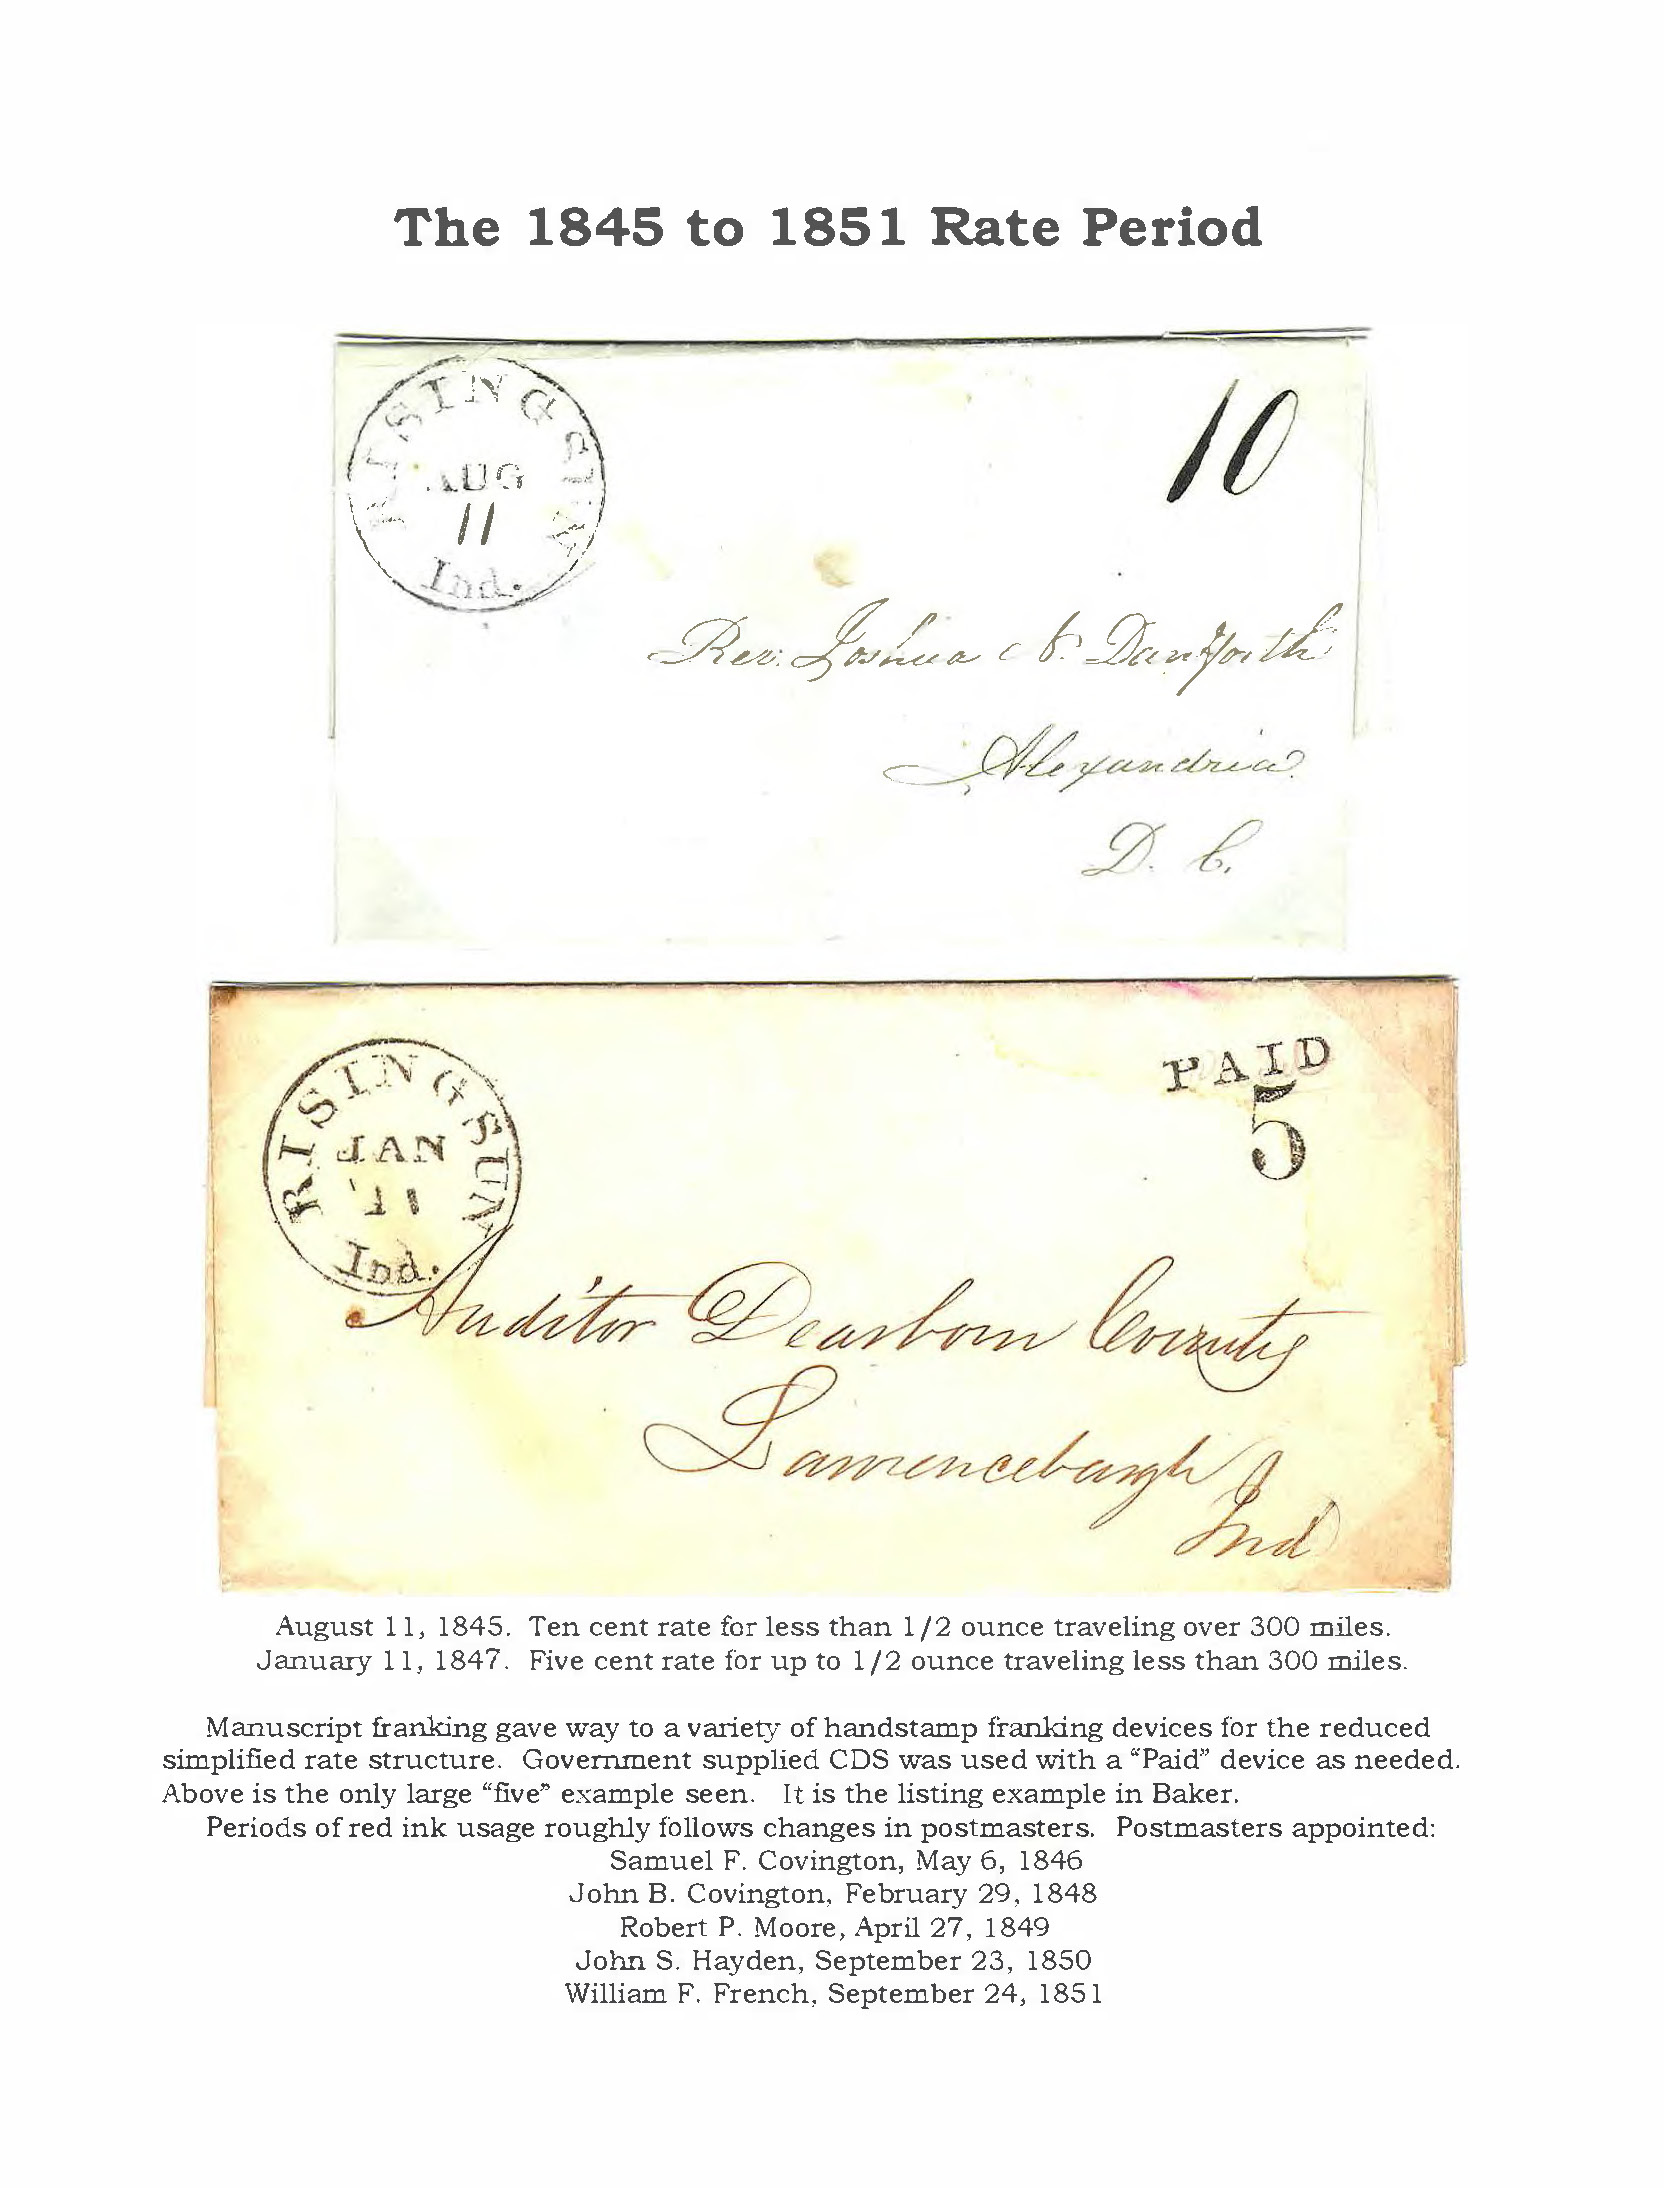 The 1845 to 1851 Rate Period
RISING SUN
AUG
11
Ind.
10
Rev. Joshua N. Danforth
Alexandria
D. C.
RISING SUN
JAN
11
Ind.
PAID
5
Auditor Dearborn County
Lawrenceburgh
Ind
August 11, 1845. Ten cent rate for less than 1/2 ounce traveling over 300 miles.
January 11, 1847. Five cent rate for up to 1/2 ounce traveling less than 300 miles.
Manuscript franking gave way to a variety of handstamp franking devices for the reduced
simplified rate structure. Government supplied CDS was used with a “Paid” device as needed.
Above is the only large “five” example seen. It is the listing example in Baker.
Periods of red ink usage roughly follows changes in postmasters. Postmasters appointed:
Samuel F. Covington, May 6, 1846
John B. Covington, February 29, 1848
Robert P. Moore, April 27, 1849
John S. Hayden, September 23, 1850
William F. French, September 24, 1851